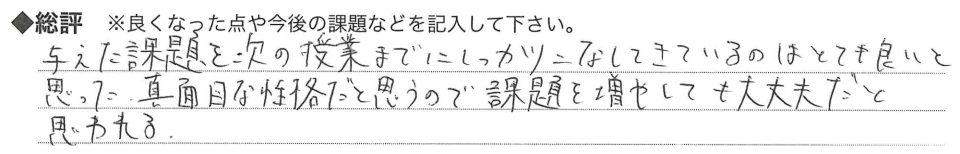 ◆総評 ※良くなった点や今後の課題などを記入して下さい。
与えた課題を次の授業までにしっかりこなしてきているのはとても良いと
思った。真面目な性格だと思うので課題を増やしても大丈夫だと
思われる。